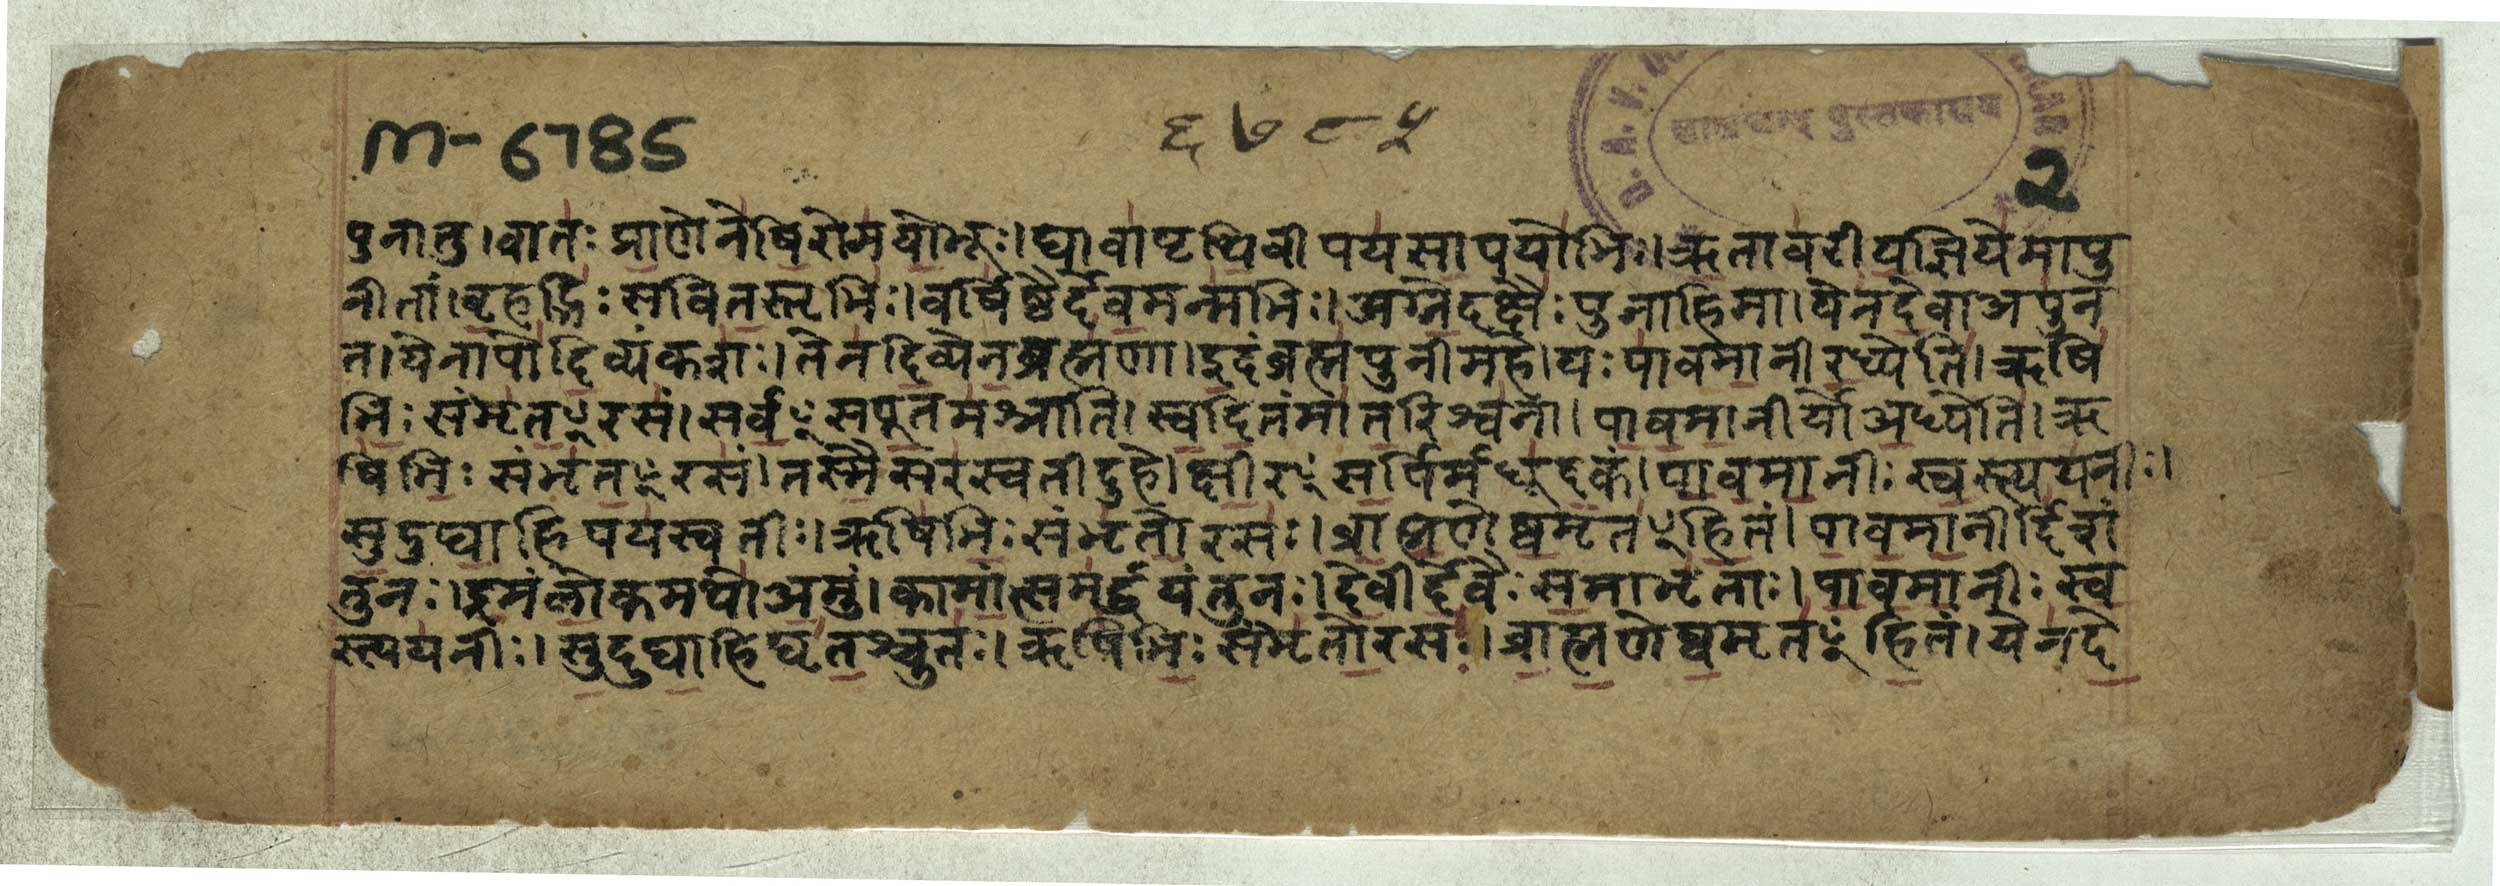 M-6785
६७८५
D. A. V.
लालचन्द पुस्तकालय
2
पुनातु।वातःप्राणेनेषिरोमयोभूः।द्यावापृथिवीपयसापयोभिः।ऋतावरीयज्ञियेमापु
नीतां।बृहद्भिःसवितस्तृभिः।वर्षिष्ठैर्द्देवमन्मभिः।अग्नेदक्षैःपुनाहिमा।येनदेवाअपुन
त।येनापोदिव्यंकशः।तेनदिव्येनब्रह्मणा।इदंब्रह्मपुनीमहे।यःपावमानीरध्येति।ऋषि
भिःसंभृतꣳरसं।सर्वꣳसपूतमश्नाति।स्वदितंमातरिश्वना।पावमानीर्योअध्येति।ऋ
षिभिःसंभृतꣳरसं।तस्मैसरस्वतीदुहे।क्षीरꣳसर्पिर्मधूदकं।पावमानीःस्वस्त्ययनीः।
सुदुघाहिपयस्वतीः।ऋषिभिःसंभृतोरसः।ब्राह्मणेष्वमृतꣳहितं।पावमानीर्द्दिशं
तुनः।इमंलोकमथोअमुं।कामांत्समर्द्धयंतुनः।देवीर्द्देवैःसमाभृताः।पावमानीःस्व
स्त्ययनीः।सुदुघाहिघृतश्चुतः।ऋषिभिःसंभृतोरसः।ब्राह्मणेष्वमृतꣳहितं।येनदे